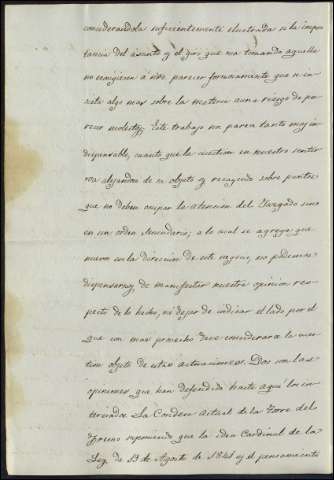 considerandola suficientemente ilustrada si la impor
tancia del asunto y el giro que va tomando aquella
no exigieran á su parecer forzosamente que se in
sista algo mas sobre la materia aun á riesgo de pa
recer molestos. Este trabajo nos parece tanto mas in
dispensable, cuanto que la cuestion en nuestro sentir
va alejandose de su objeto y recayendo sobre puntos
que no deben ocupar la atencion del Juzgado sino
en un orden secundario; á lo cual se agrega que
nuevos en la direccion de este negocio, no podemos
dispensarnos de manifestar nuestra opinion res
pecto de los hechos, ni dejar de indicar el lado por el
que con mas provecho debe considerarse la cues
tion objeto de estas actuaciones. Dos son las
opiniones que han defendido hasta aquí los in
teresados. La Condesa actual de la Torre del
Fresno suponiendo que la idea Cardinal de la
Ley de 19 de Agosto de 1841 y el pensamiento